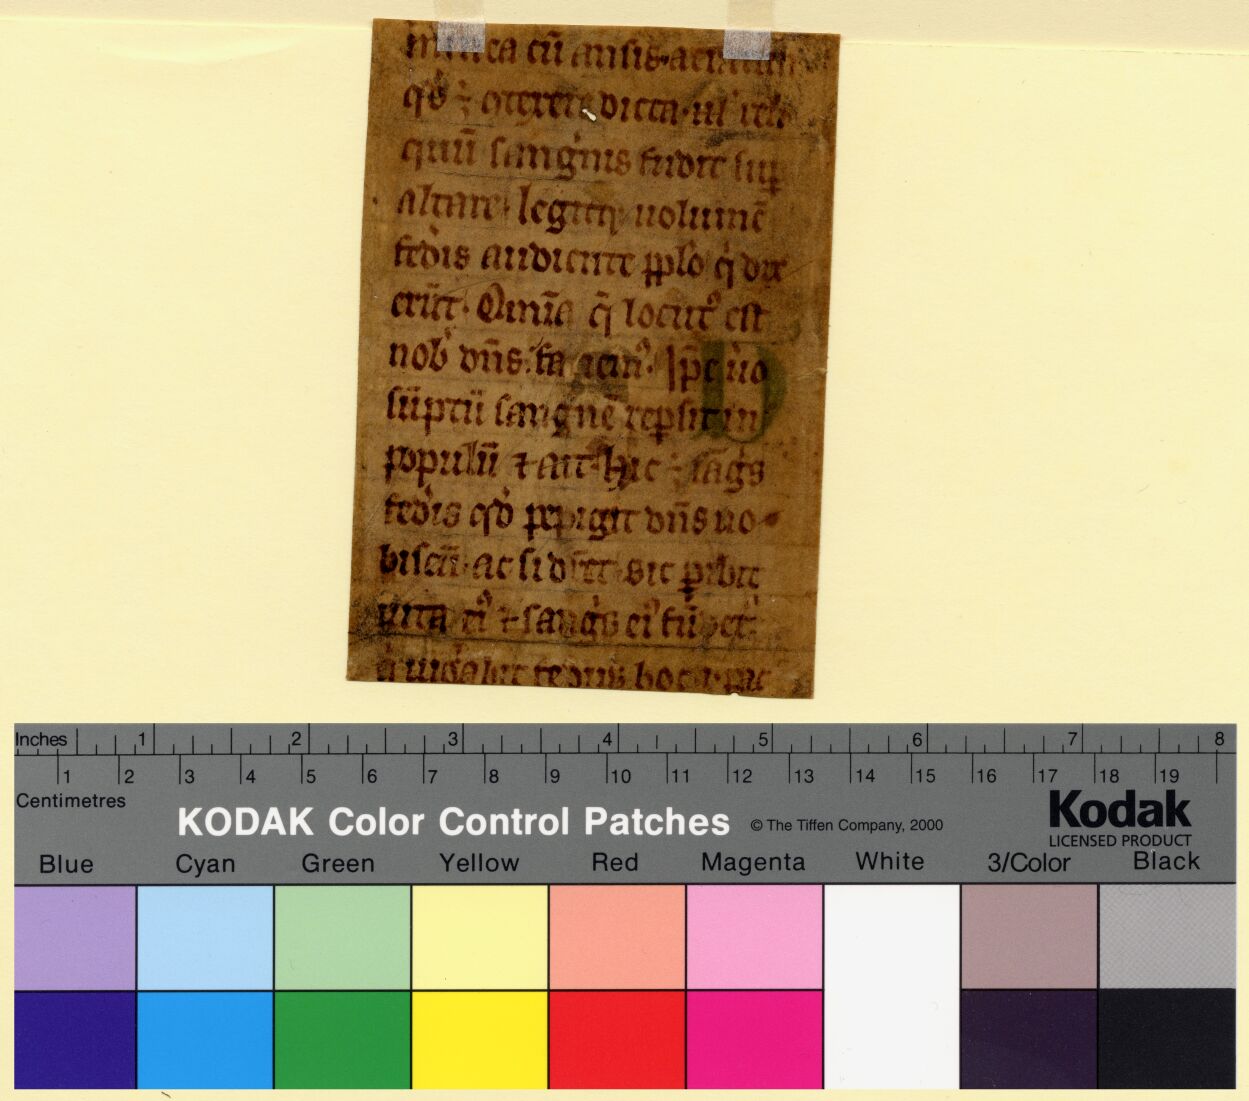 cū ausis
dicta·
quū sanguis fudit suꝑ
altare legitqꝫ uolumē
fedis audiente pplo q̇ dix
erūt· Omīa q̄ locutꝰ est
nob dn̄s· faciemꝰ· Ip̄e ūo
sūptū sanguinē respsit in
populū ⁊ ait· Hic ÷ sāgs
fedis qd pepigit dn̄s uo
biscū· ac si dicēt· sic ꝑibit
uita eiꝰ ⁊ sangs eiꝰ fūdet
hoc
Inches 1 2 3 4 5 6 7 8
1 2 3 4 5 6 7 8 9 10 11 12 13 14 15 16 17 18 19
Centimetres
KODAK Color Control Patches © The Tiffen Company, 2000
Kodak
LICENSED PRODUCT
Blue Cyan Green Yellow Red Magenta White 3/Color Black